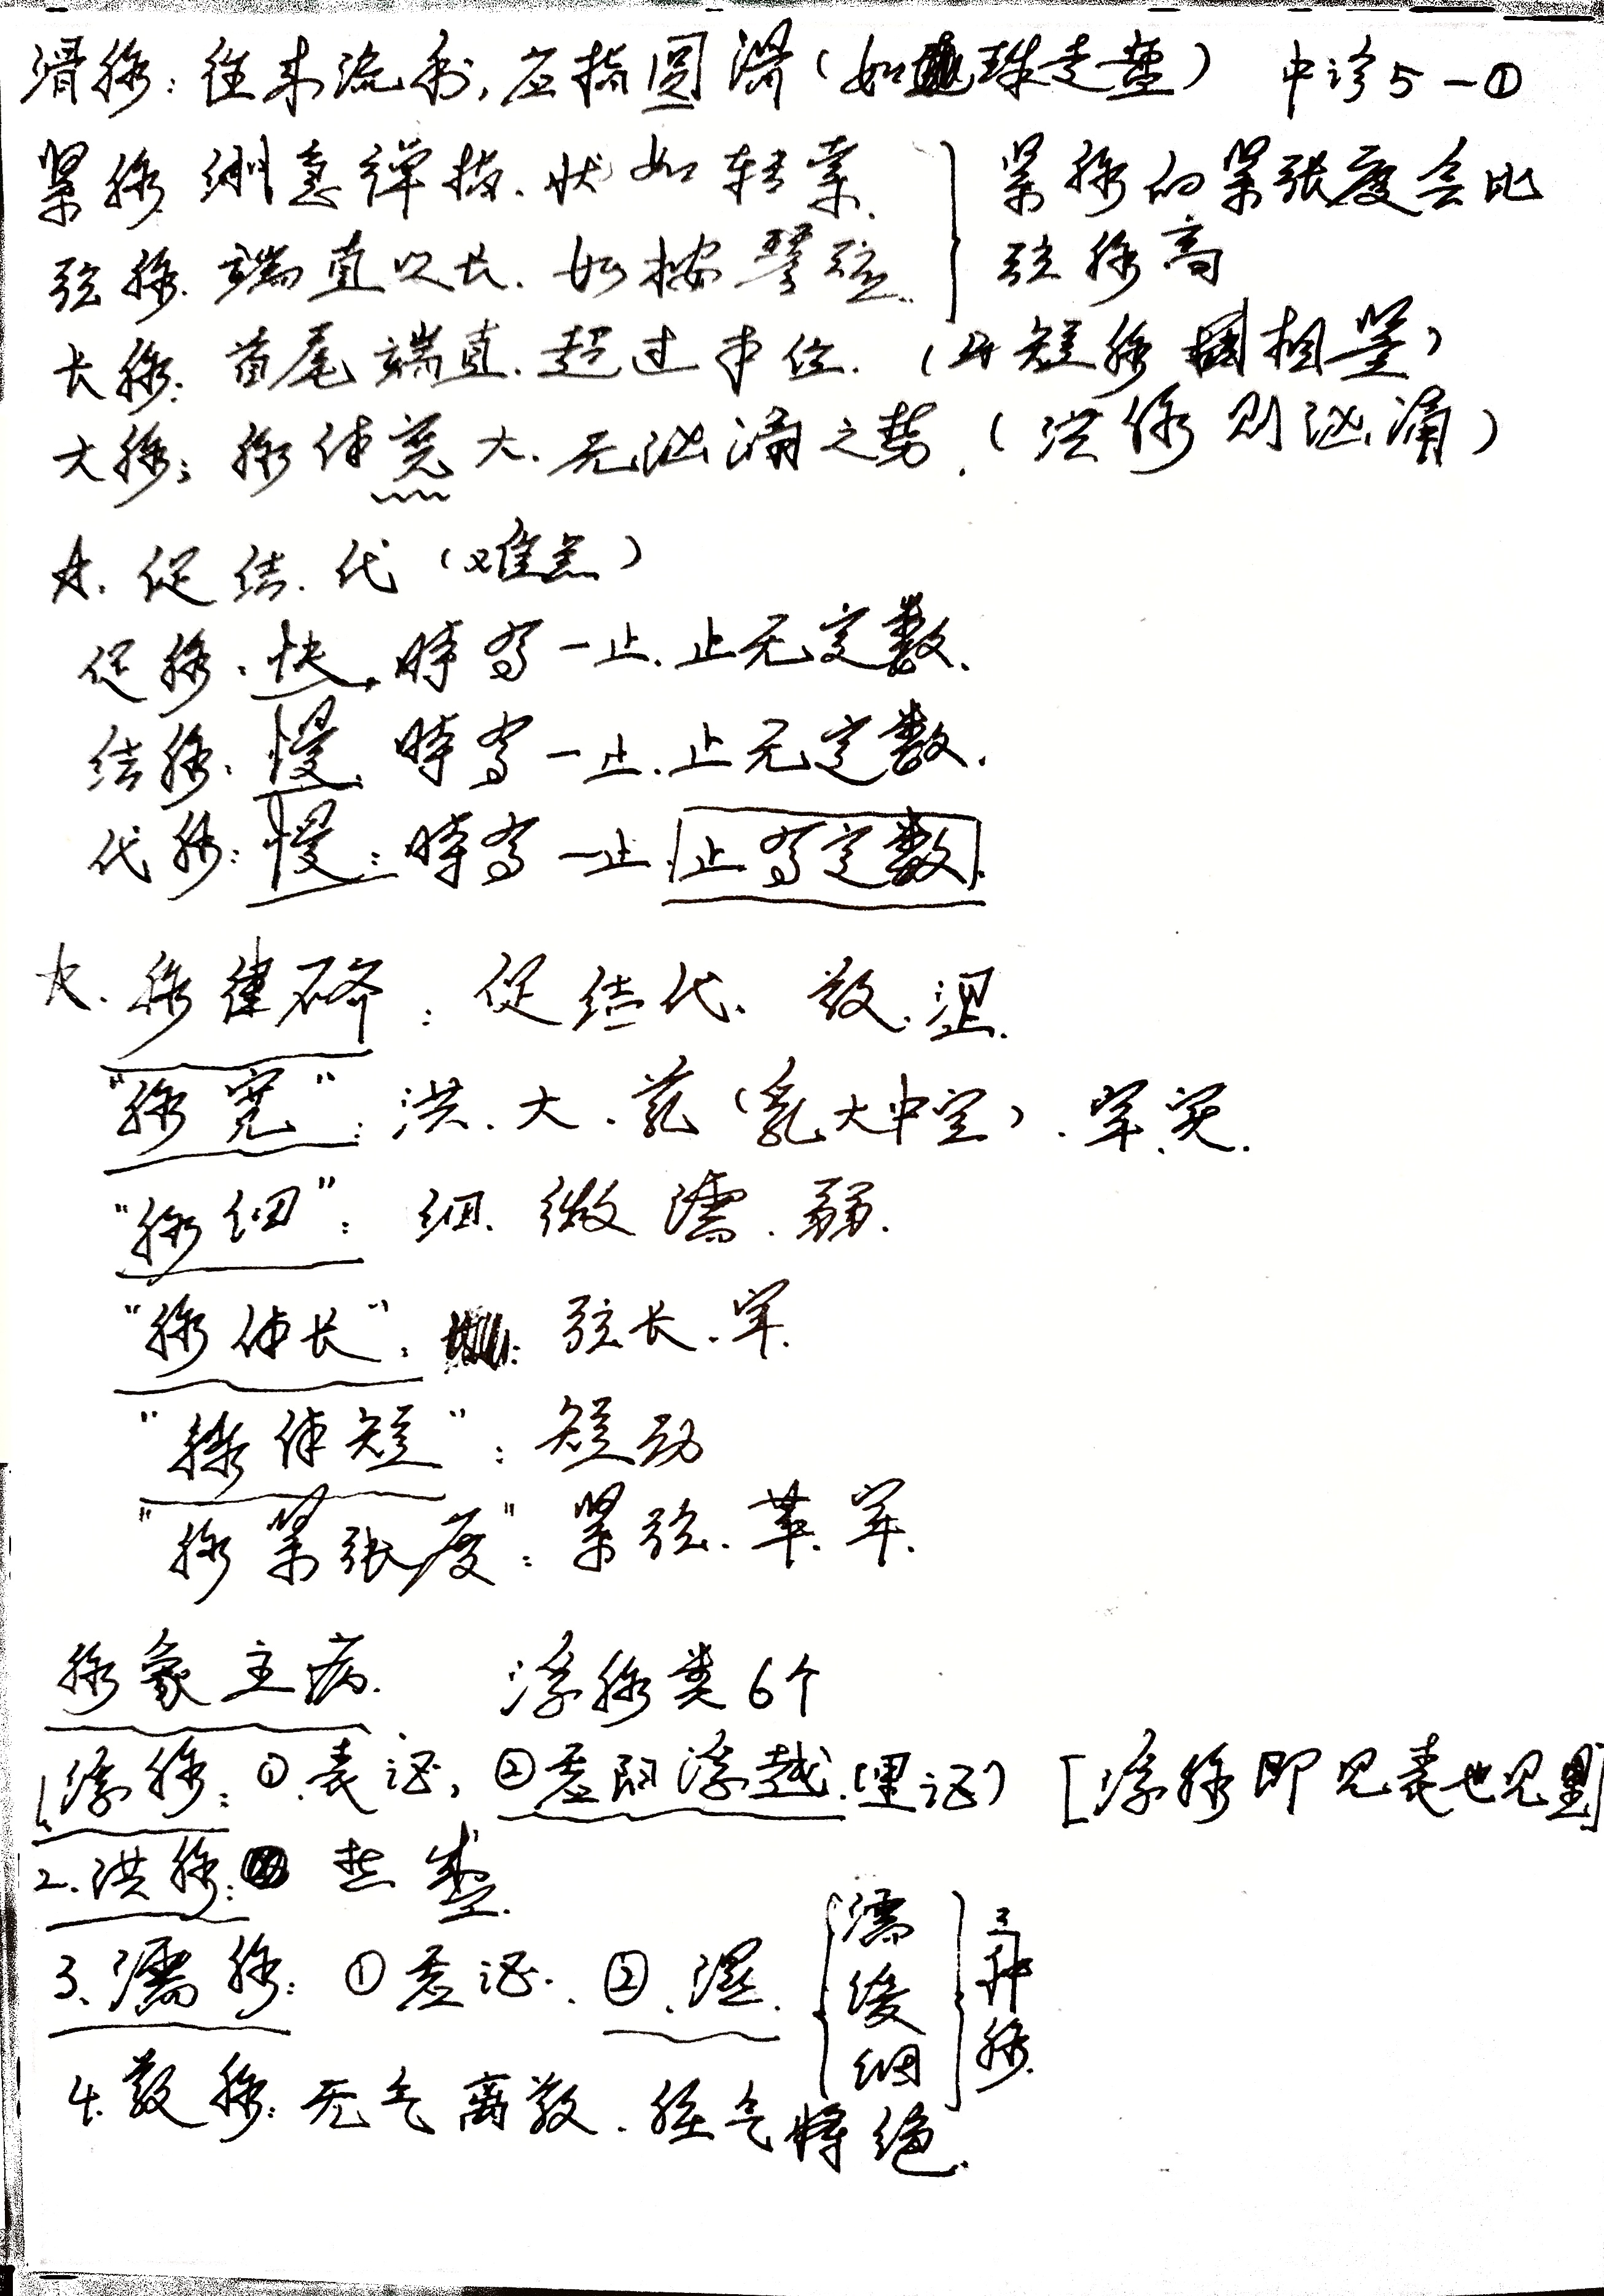 滑脉：往来流利，应指圆滑（如珠走盘） 中诊5-①
紧脉 绷急弹指．状如转索． 紧脉的紧张度会比
弦脉．端直以长．如按琴弦． 弦脉高
长脉．首尾端直．超过本位．（与短脉相鉴）
大脉：脉体宽大．无汹涌之势．（洪脉则汹涌）
促 结．代（难点）
促脉．快．時有一止．止无定数．
结脉．慢．時有一止．止无定数．
代脉：慢：時有一止．止有定数．
脉律不齐：促结代、散．涩．
"脉宽"：洪．大．芤（芤大中空）．牢．实．
"脉细"：细．微 濡．弱．
"脉体长"：弦长．牢．
"脉体短"：短动
"脉紧张度"：紧弦．革．牢．
脉象主病． 浮脉类6个
1.浮脉：①.表证，②虚阳浮越．（里证）［浮脉即见表也见里］
2.洪脉： 热盛．
3.濡脉：①虚证．②.湿． 濡 缓 细 三种脉．
4.散脉：元气离散．脏气将绝．